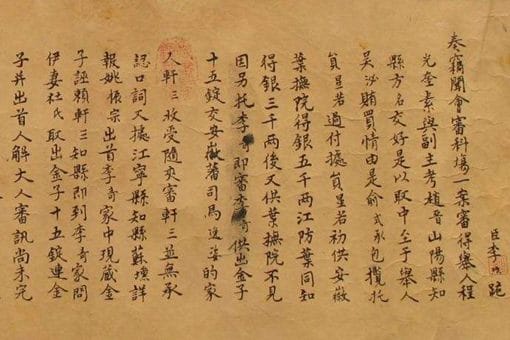 臣李煦跪
奏竊聞會審科場一案審得舉人程
光奎素與副主考趙晉山陽縣知
縣方名交好是以取中至于舉人
吳泌賄買情由是俞式承包攬托
員星若過付據員星若初供安徽
葉撫院得銀五千兩江防葉同知
得銀三千兩後又供葉撫院不見
因另托李奇即審李奇供出金子
十五錠交安徽藩司馬逸姿的家
人軒三收受隨夾審軒三並無承
認口詞又據江寧縣知縣蘇壎詳
報姚振宗出首李奇家中現藏金
子誣賴軒三知縣即到李奇家問
伊妻杜氏取出金子十五錠連金
子并出首人解大人審訊尚未完